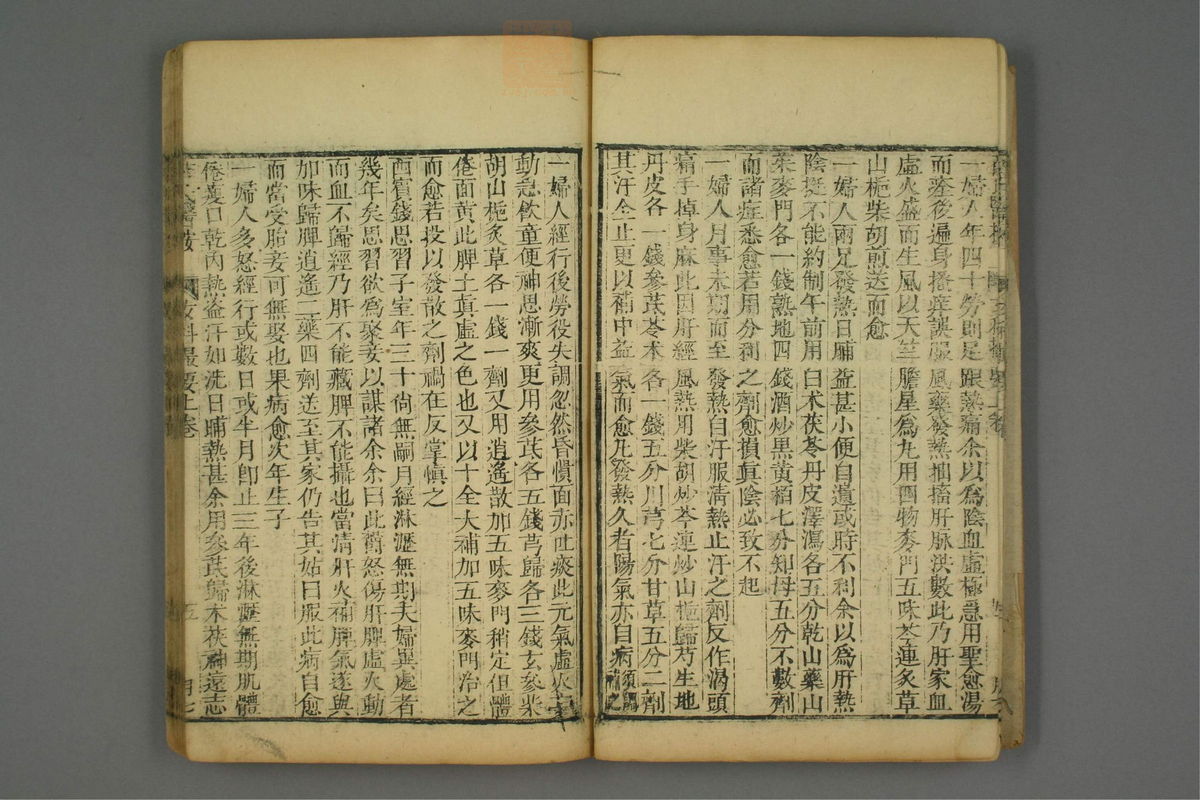 一婦人年四十勞則足跟熱痛余以爲陰血虛極急用聖愈湯
而痊後遍身搔痒誤服風藥發熱搐搦肝脉洪數此乃肝家血
虛火盛而生風以天竺膽星爲丸用四物麥門五味芩連炙草
山梔柴胡煎送而愈
一婦人兩足發熱日晡益甚小便自遺或時不利余以爲肝熱
陰挺不能約制午前用白术茯苓丹皮澤瀉各五分乾山藥山
茱麥門各一錢熟地四錢酒炒黑黃栢七分知母五分不數劑
而諸症悉愈若用分利之劑愈損眞陰必致不起
一婦人月事未期而至發熱自汗服清熱止汗之劑反作渴頭
痛手掉身麻此因肝經風熱用柴胡炒芩連炒山梔歸芍生地
丹皮各一錢參芪苓术各一錢五分川芎七分甘草五分二劑
其汗全止更以補中益氣而愈凡發熱久者陽氣亦自病須調補之
一婦人經行後勞役失調忽然昏憒面赤吐痰此元氣虛火妄
動急飲童便神思漸爽更用參芪各五錢芎歸各三錢玄參柴
胡山梔炙草各一錢一劑又用逍遙散加五味麥門稍定但體
倦面黃此脾土眞虛之色也又以十全大補加五味麥門治之
而愈若投以發散之劑禍在反掌慎之
西賓錢思習子室年三十尙無嗣月經淋瀝無期夫婦異處者
幾年矣思習欲爲聚妾以謀諸余余曰此鬱怒傷肝脾虛火動
而血不歸經乃肝不能藏脾不能攝也當清肝火補脾氣遂與
加味歸脾逍遙二藥四劑送至其家仍告其姑曰服此病自愈
而當受胎妾可無娶也果病愈次年生子
一婦人多怒經行或數日或半月卽止三年後淋瀝無期肌體
倦瘦口乾內熱盜汗如洗日晡熱甚余用參芪歸术茯神遠志
女科撮要上卷
五